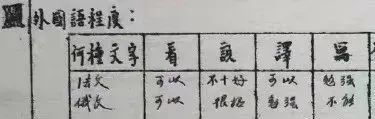 外國語程度：
何種文字 看 說 譯 寫
法文 可以 不十好 可以 勉強
俄文 可以 勉強 不能